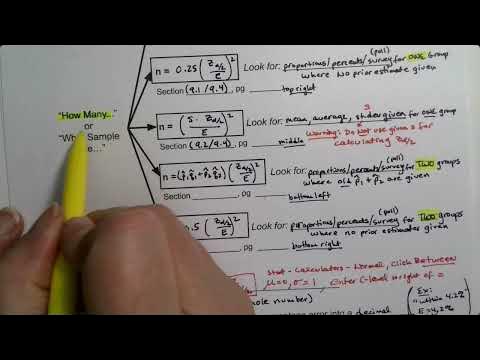 (poll)
n = 0.25 (Zα/2 / E)² Look for: proportions/percents/survey for ONE group
where NO prior estimate given
Section (9.1/9.4), pg ___ top right
"How Many..."
or
"Wh Sample
e..."
S
n = (S · Zα/2 / E)² Look for: mean, average, st.dev given for ONE group
Section (9.2/9.4), pg ___ middle Warning: Do NOT use given s for
calculating Zα/2
(poll)
n = (p̂₁q̂₁ + p̂₂q̂₂)(Zα/2 / E)² Look for: proportions/percents/survey for TWO groups
where old p̂₁ + p̂₂ given
Section ___, pg ___ bottom left
(poll)
.5 (Zα/2 / E)² Look for: proportions/percents/survey for TWO groups
where no prior estimates given
, pg ___ bottom right
stat - Calculators - Normal, click Between
μ=0, σ=1, Enter C-level to right of =
ole number)
error into a decimal
Ex:
"within 4.2%"
E = 4.2%